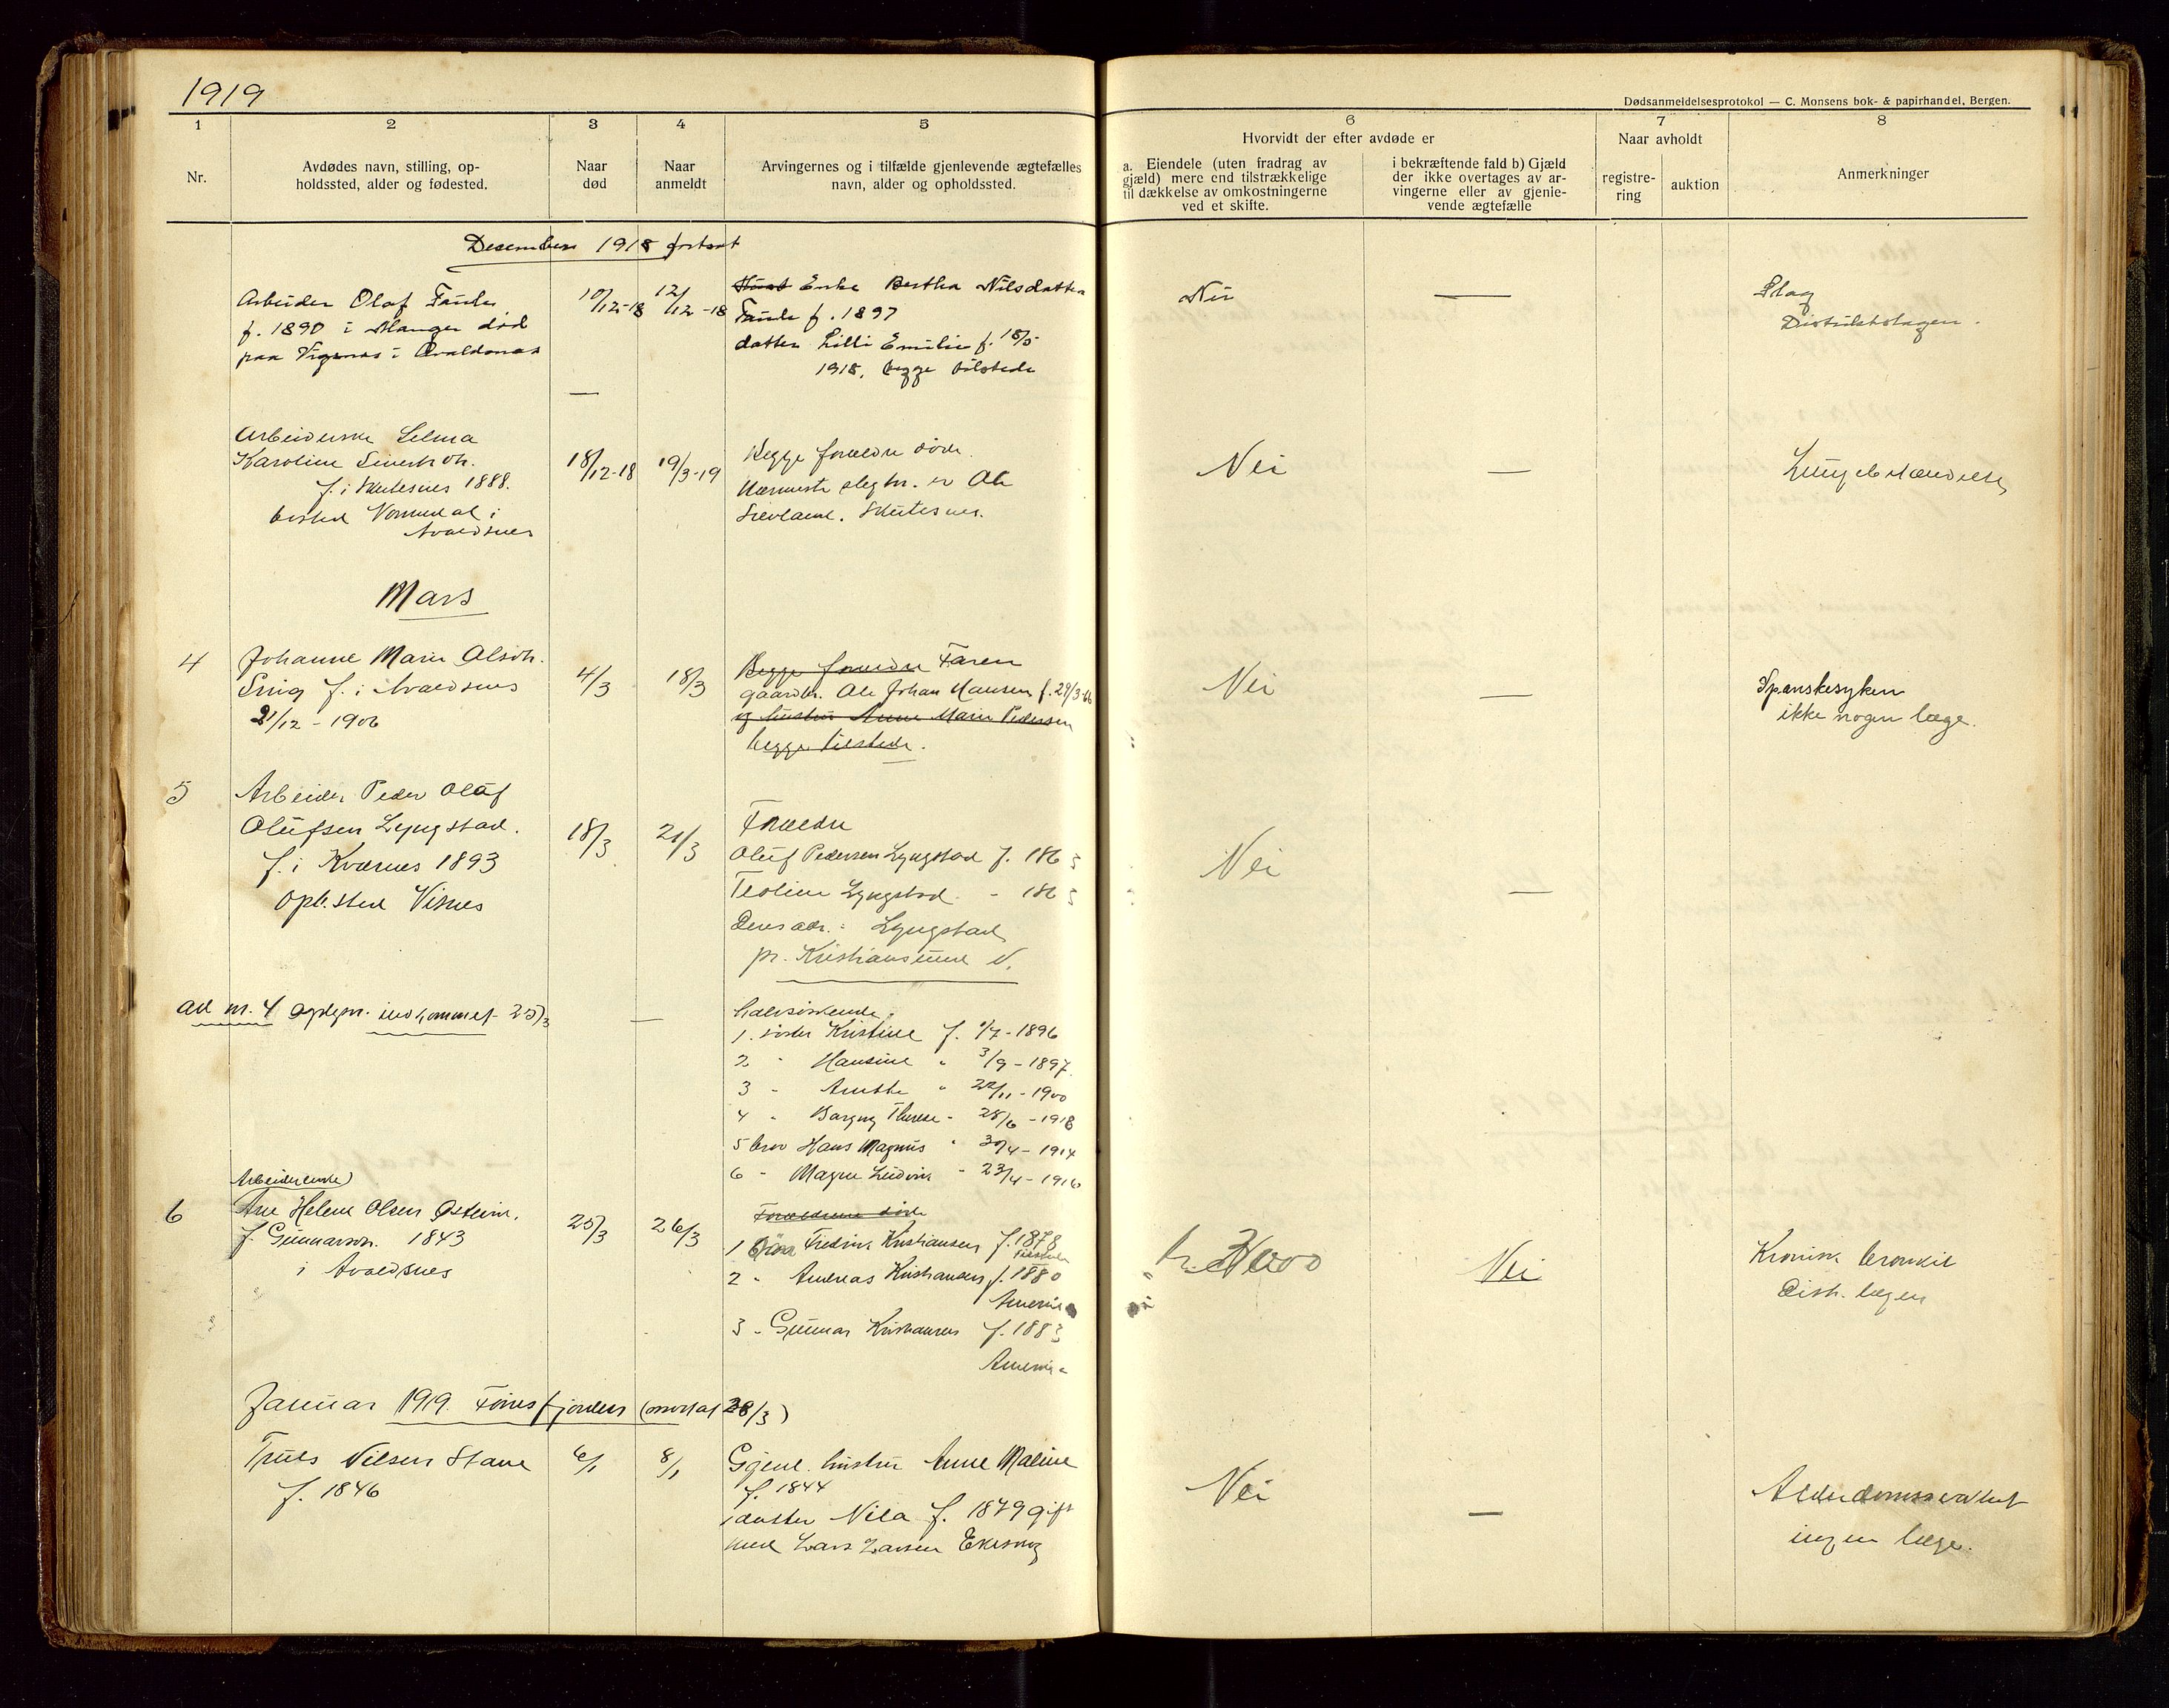 1919
Dødsanmeldelsesprotokol — C. Monsens bok- & papirhandel, Bergen.
1 2 3 4 5 6 7 8
Nr.
Avdødes navn, stilling, op-
holdssted, alder og fødested.
Naar
død
Naar
anmeldt
Arvingernes og i tilfælde gjenlevende ægtefælles
navn, alder og opholdssted.
Hvorvidt der efter avdøde er
a. Eiendele (uten fradrag av
gjæld) mere end tilstrækkelige
til dækkelse av omkostningerne
ved et skifte.
i bekræftende fald b) Gjæld
der ikke overtages av ar-
vingerne eller av gjenle-
vende ægtefælle
Naar avholdt
registre-
ring
auktion
Anmerkninger
Desember 1918 fortsat
Arbeider Olaf
f. 1890 i Manger død
paa Vigsnes i Avaldsnes
10/12-18
12/12-18
Enke Bertha Nilsdatter
f. 1897
datter Lilli Emilie f. 18/5
1918, begge tilstede
Nei
—
Slag
Distriktslægen.
—
Arbeiderske Selma
Karoline
f. i Skutesnes 1888.
bosted i
Avaldsnes
18/12-18
19/3-19
Begge forældre døde.
Nærmeste slegtn. er Ole
Skutesnes.
Nei
—
Lungebetændelse
Mars
4
Johanne Marie Olsdtr.
f. i Avaldsnes
21/12 - 1906
4/3
18/3
Begge forældre Faren
gaardbr. Ole Johan Hansen f. 29/3-66
og hustru Anne Marie Pedersen
begge tilstede.
Nei
—
Spanskesyken
ikke nogen læge.
5
Arbeider Peder Olaf
Olufsen Lyngstad.
f. i Kværnes 1893
oph.sted Visnes
18/3
21/3
Forældre
Oluf Pedersen Lyngstad f. 1865
Lyngstad - 1865
Deres adr.: Lyngstad
pr. Kristiansund N.
Nei
—
Ad nr. 4 opligsn. indkommet 25/3
—
halvsøskende:
1. søster Kristine f. 1/7 - 1896
2 - Hansine " 3/9 - 1897
3 - Anette " 22/11 - 1900
4 - Borgny Therese - 28/6 - 1918
5 bror Hans Magnus " 30/4 - 1914
6 - Magne Ludvik - 23/4 - 1916
Arbeiderenke
6
Ane Helene Olsen Østeim.
f. Gunnarson. 1843
i Avaldsnes
25/3
26/3
Forældrene døde
1 Fredrik Kristiansen f. 1878
tilstede
2 - Andreas Kristiansen f. 1880
Amerika
3 - Gunnar Kristiansen f. 1883
Amerika
Nei
Kronisk bronkit
Distr. lægen
Januar 1919. Førresfjorden (mottat 28/3)
Truls Nilsen Stave
f. 1846
6/1
8/1
Gjenl. hustru Anne Maline
f. 1844
datter Nila f. 1879 gift
med Lars Larsen Ekeskog
Nei
—
Alderdomssvakhet
ingen læge.